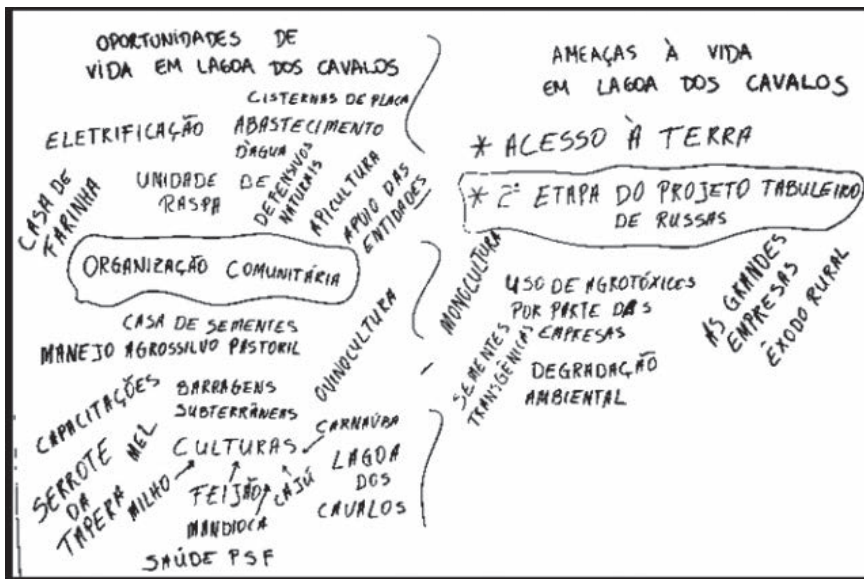 OPORTUNIDADES DE
VIDA EM LAGOA DOS CAVALOS
CISTERNAS DE PLACA
ELETRIFICAÇÃO
ABASTECIMENTO
D'AGUA
CASA DE
FARINHA
UNIDADE DE
RASPA
DEFENSIVOS
NATURAIS
APICULTURA
APOIO DAS
ENTIDADES
ORGANIZAÇÃO COMUNITÁRIA
CASA DE SEMENTES
MANEJO AGROSSILVO PASTORIL
OVINOCULTURA
CAPACITAÇÕES
BARRAGENS
SUBTERRÂNEAS
MEL
SERROTE
DA
TAPERA
CULTURAS
CARNAÚBA
MILHO
FEIJÃO
CAJÚ
MANDIOCA
LAGOA
DOS
CAVALOS
SAÚDE PSF
AMEAÇAS À VIDA
EM LAGOA DOS CAVALOS
* ACESSO À TERRA
* 2ª ETAPA DO PROJETO TABULEIRO
DE RUSSAS
MONOCULTURA
USO DE AGROTÓXICOS
POR PARTE DAS
EMPRESAS
AS GRANDES
EMPRESAS
ÊXODO RURAL
SEMENTES
TRANSGÊNICAS
DEGRADAÇÃO
AMBIENTAL